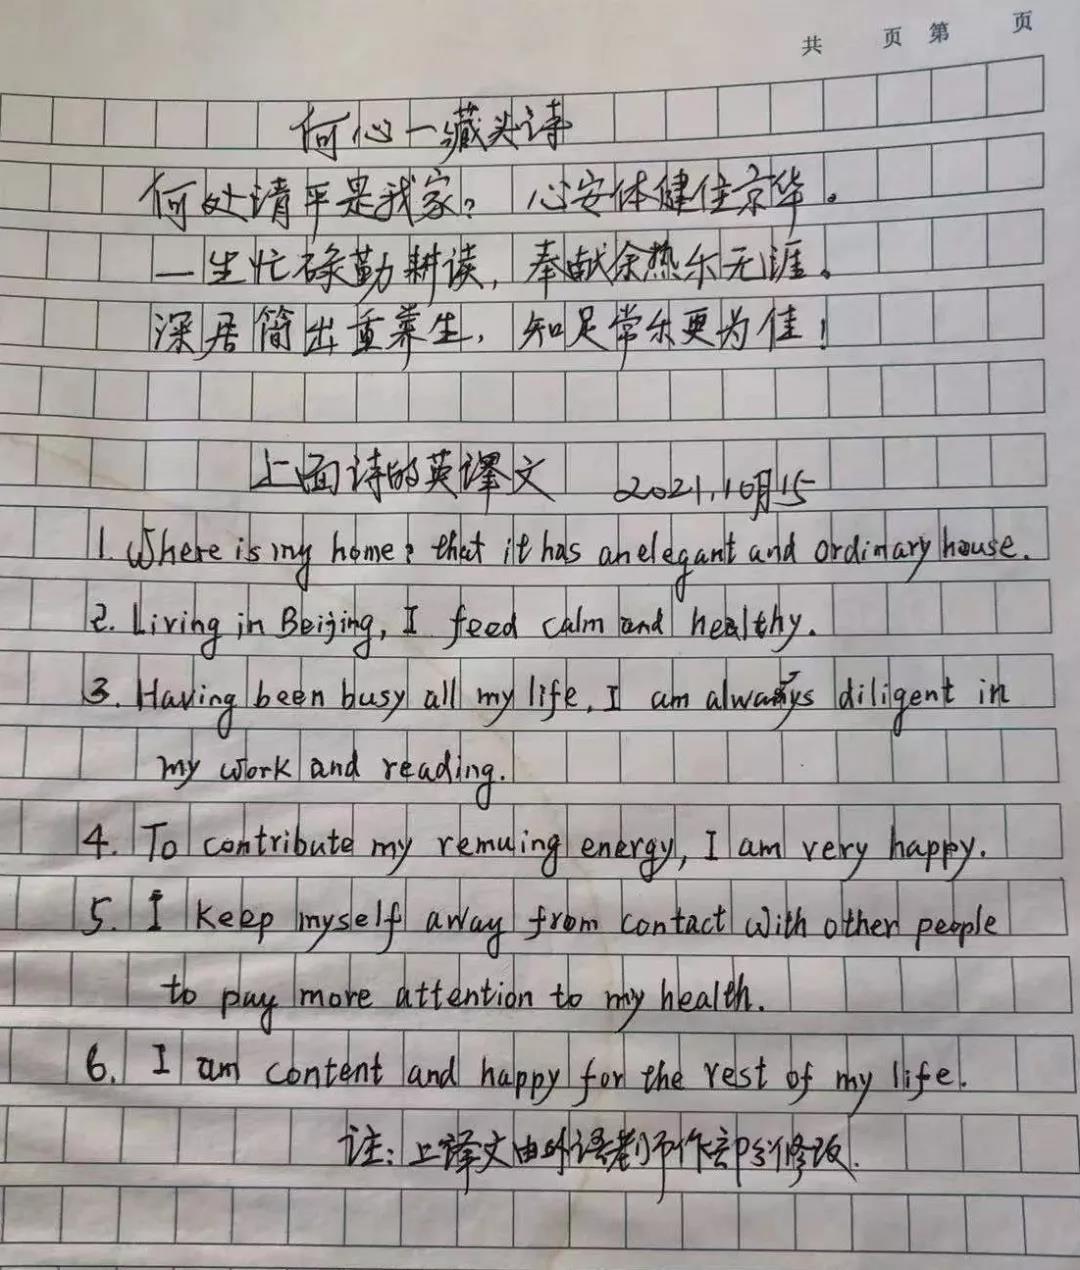 共 页 第 页
何心一藏头诗
何处清平是我家？ 心安体健住京华。
一生忙碌勤耕读， 奉献余热乐无涯。
深居简出重养生， 知足常乐更为佳！
上面诗的英译文 2021.10月15
1. Where is my home? that it has an elegant and ordinary house.
2. Living in Beijing, I feed calm and healthy.
3. Having been busy all my life, I am always diligent in
my work and reading.
4. To contribute my remuing energy, I am very happy.
5. I keep myself away from contact with other people
to pay more attention to my health.
6. I am content and happy for the rest of my life.
注：上译文由外语老师作部分修改.